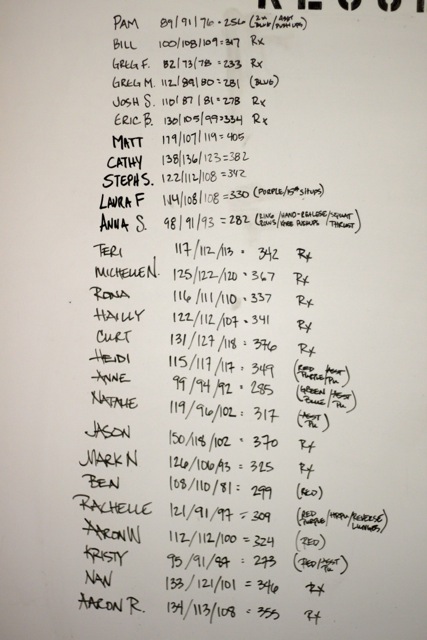 PAM 89/91/76 = 256
BILL 100/108/109 = 317 Rx
GREG F. 82/73/78 = 233 Rx
GREG M. 112/89/80 = 281 (BLUE)
JOSH S. 110/87/81 = 278 Rx
ERIC B. 130/105/99 = 334 Rx
MATT 179/107/119 = 405
CATHY 138/136/123 = 382
STEPH S. 122/112/108 = 342
LAURA F 114/108/108 = 330 (PURPLE/15# SITUPS)
ANNA S. 98/91/93 = 282 (RING/HAND-REALESE/SQUAT ROWS/KNEE PUSHUPS/THRUST)
TERI 117/112/113 = 342 Rx
MICHELLE N. 125/122/120 = 367 Rx
RONA 116/111/110 = 337 Rx
HAILLY 122/112/107 = 341 Rx
CURT 131/127/118 = 376 Rx
HEIDI 115/117/117 = 349 (RED PURPLE/ASST PU)
ANNE 99/94/92 = 285 (GREEN/ASST BLUE/PU)
NATALIE 119/96/102 = 317 (ASST PU)
JASON 150/118/102 = 370 Rx
MARK N 126/106/93 = 325 Rx
BEN 108/110/81 = 299 (RED)
RACHELLE 121/91/97 = 309 (RED PURPLE/REVERSE LUNGES)
AARON W 112/112/100 = 324 (RED)
KRISTY 95/91/87 = 273 (RED/ASST PU)
NAN 133/121/101 = 346 Rx
AARON R. 134/113/108 = 355 Rx